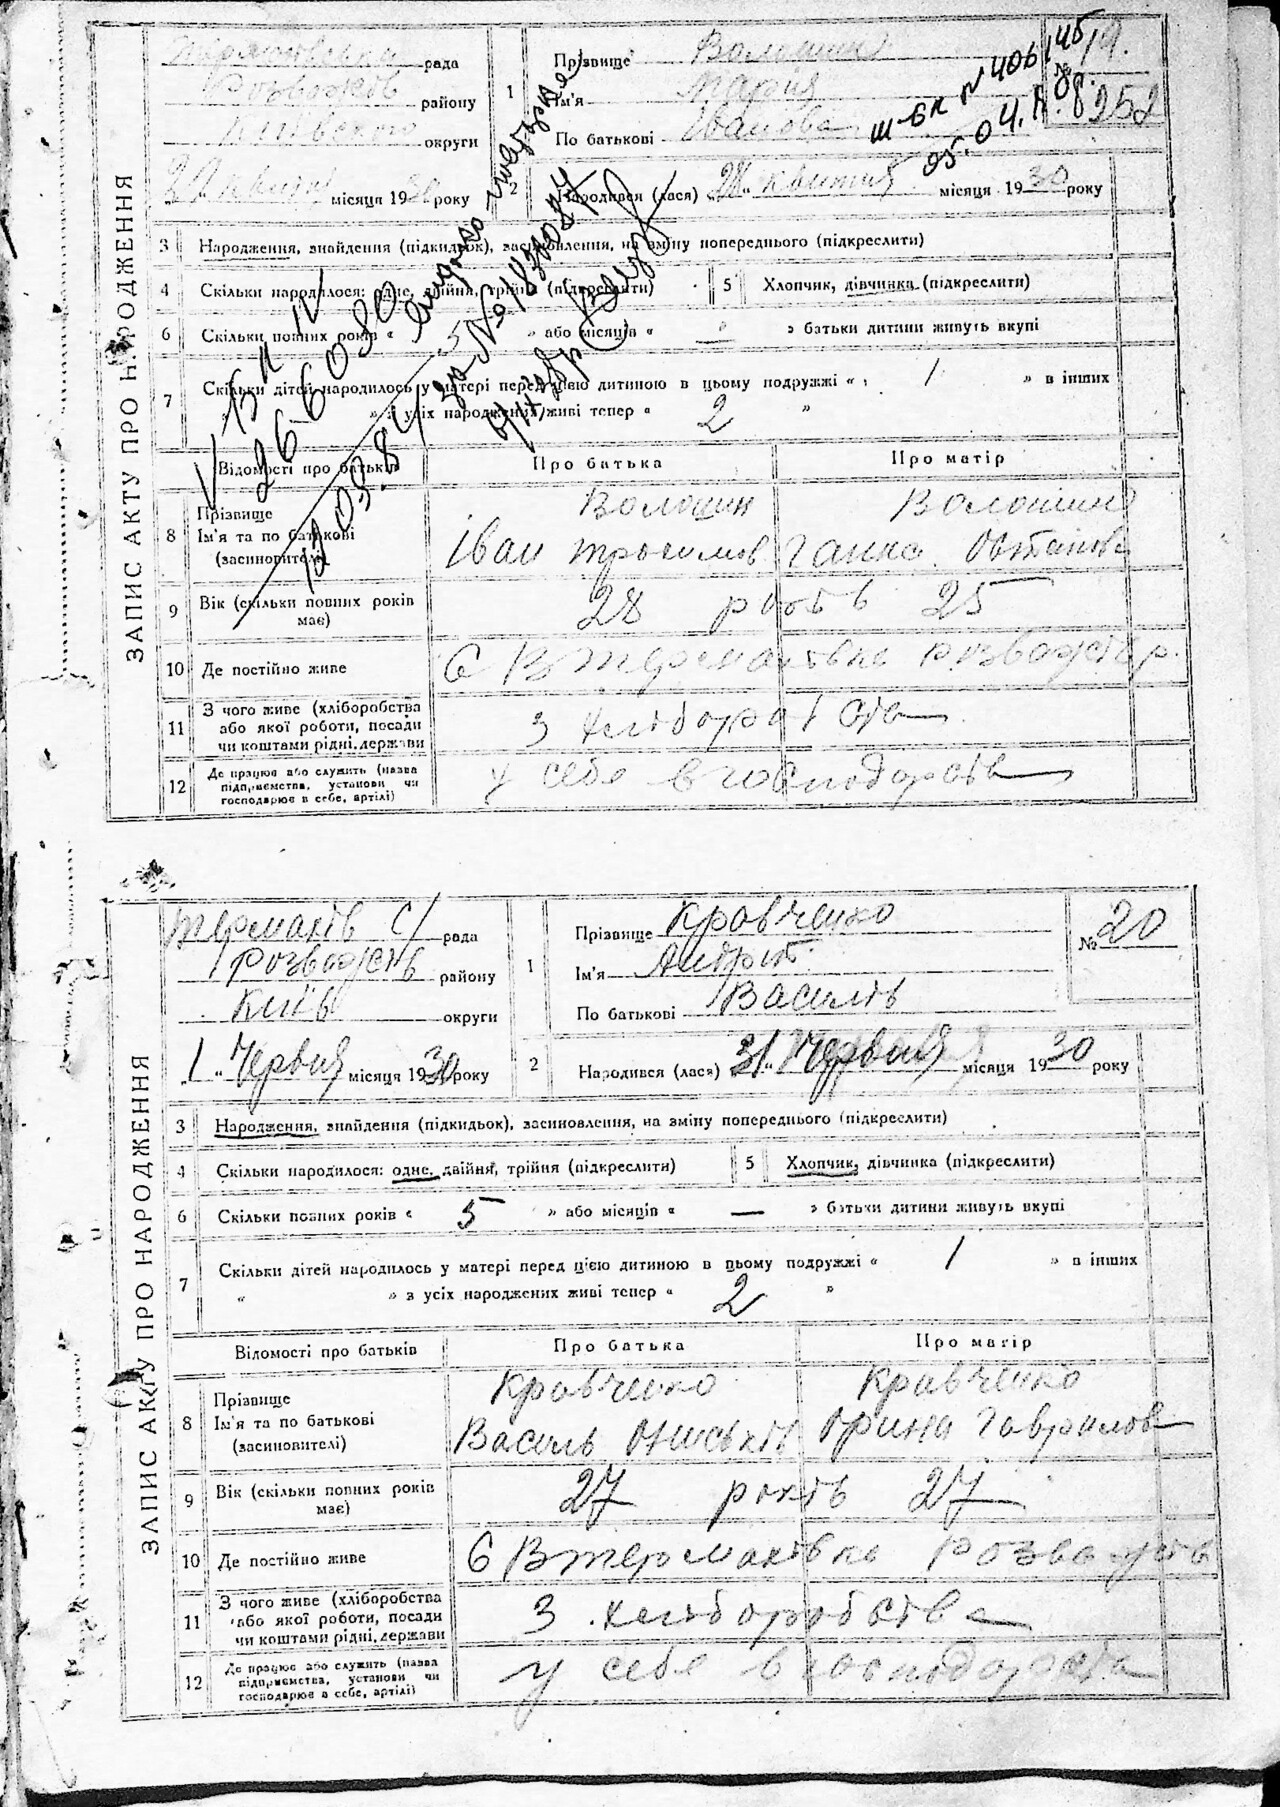 ЗАПИС АКТУ ПРО НАРОДЖЕННЯ
рада
Розважів району
Київского округи
місяця 1930 року
1
Прізвище Волошин
Ім'я Марія
По батькові Іванова
№ 19.
252
2
Народився (лася) „ “ квітня місяця 1930 року
3 Народження, знайдення (підкидьок), засиновлення, на зміну попереднього (підкреслити)
4 Скільки народилося: одне, двійня, трійня (підкреслити)
5 Хлопчик, дівчинка (підкреслити)
6 Скільки повних років « 5 » або місяців « — » батьки дитини живуть вкупі
7 Скільки дітей народилось у матері перед цією дитиною в цьому подружжі « 1 » в інших
« » з усіх народжених живі тепер « 2 »
Відомості про батьків
Про батька
Про матір
8 Прізвище
Ім'я та по батькові
(засиновителі)
Волошин
Іван Трохимов
Волошин
Ганна Остапова
9 Вік (скільки повних років має)
28 років 25
10 Де постійно живе
с В Термахівка Розважів р.
11 З чого живе (хліборобства або якої роботи, посади чи коштами рідні, держави
З хліборобства
12 Де працює або служить (назва підприємства, установи чи господарює в себе, артілі)
у себе в господарстві
ЗАПИС АКТУ ПРО НАРОДЖЕННЯ
Термахів С/ рада
Розважів району
Київ округи
„1“ Червня місяця 1930 року
1
Прізвище Кравченко
Ім'я Андрій
По батькові Василів
№ 20
2
Народився (лася) „31“ Червня місяця 1930 року
3 Народження, знайдення (підкидьок), засиновлення, на зміну попереднього (підкреслити)
4 Скільки народилося: одне, двійня, трійня (підкреслити)
5 Хлопчик, дівчинка (підкреслити)
6 Скільки повних років « 5 » або місяців « — » батьки дитини живуть вкупі
7 Скільки дітей народилось у матері перед цією дитиною в цьому подружжі « 1 » в інших
« » з усіх народжених живі тепер « 2 »
Відомості про батьків
Про батька
Про матір
8 Прізвище
Ім'я та по батькові
(засиновителі)
Кравченко
ВасильОниськів
Кравченко
Орина Гаврилов
9 Вік (скільки повних років має)
27 років 27
10 Де постійно живе
с В Термахівка Розважів
11 З чого живе (хліборобства або якої роботи, посади чи коштами рідні, держави
З хліборобства
12 Де працює або служить (назва підприємства, установи чи господарює в себе, артілі)
у себе в господарстві